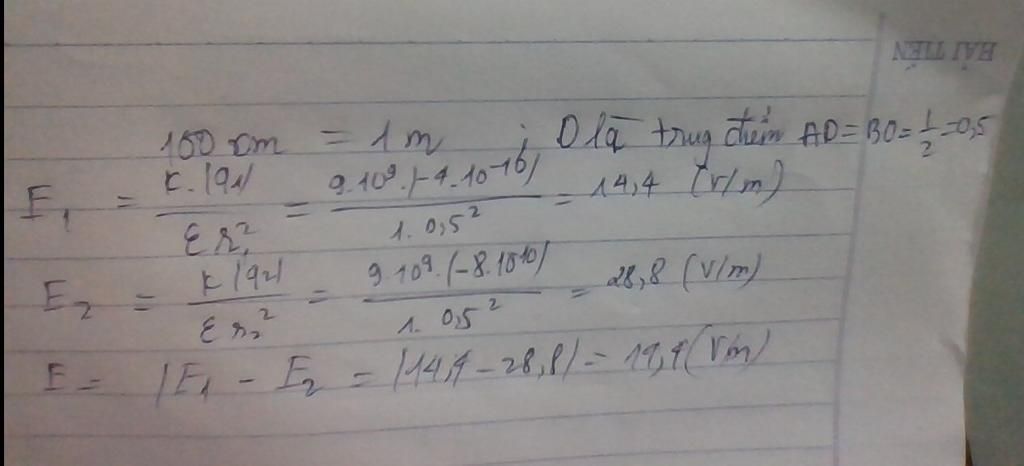 HẢI TIẾN
100 cm = 1m ; O là trug điểm AO = BO = 1/2 = 0,5
E₁ = K.|q₁| / εr₁² = 9.10⁹.|-4.10⁻¹⁰| / 1.0,5² = 14,4 (V/m)
E₂ = K|q₂| / εr₂² = 9.10⁹.|-8.10¹⁰| / 1.0,5² = 28,8 (V/m)
E = |E₁ - E₂ = |14,4 - 28,8| = 14,4 (V/m)